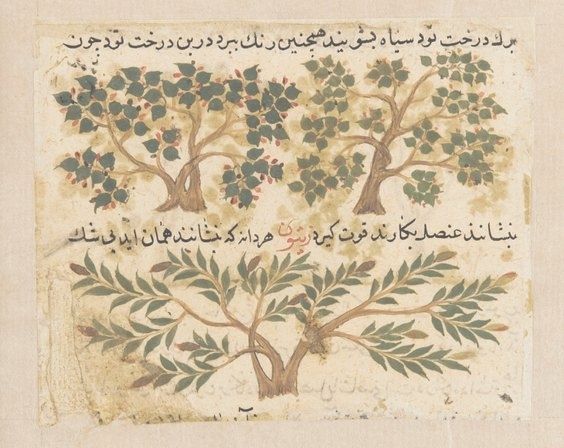 برك درخت تود سیاه بشویند همچنین رنك ببرد در بن درخت تود جون
بنشانند عنصل بکارند قوت کیرد زیتون هر دانه که بنشانند همان اید بی شك